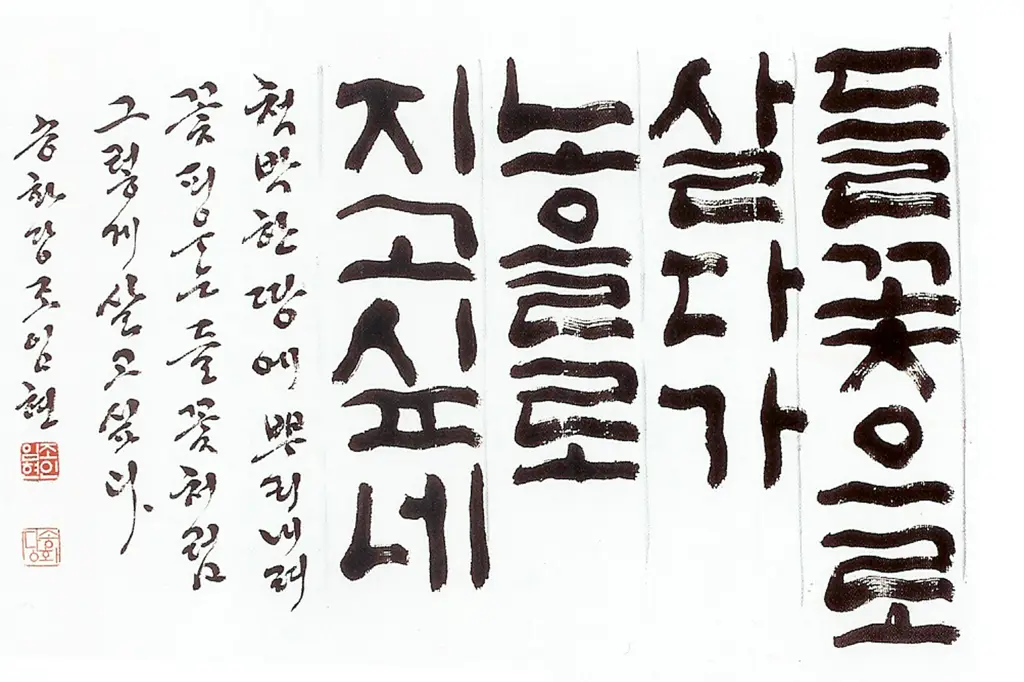 들꽃으로
살다가
노을로
지고싶네
척박한 땅에 뿌리내려
꽃 피우는 들꽃처럼
그렇게 살고 싶다.
조임현